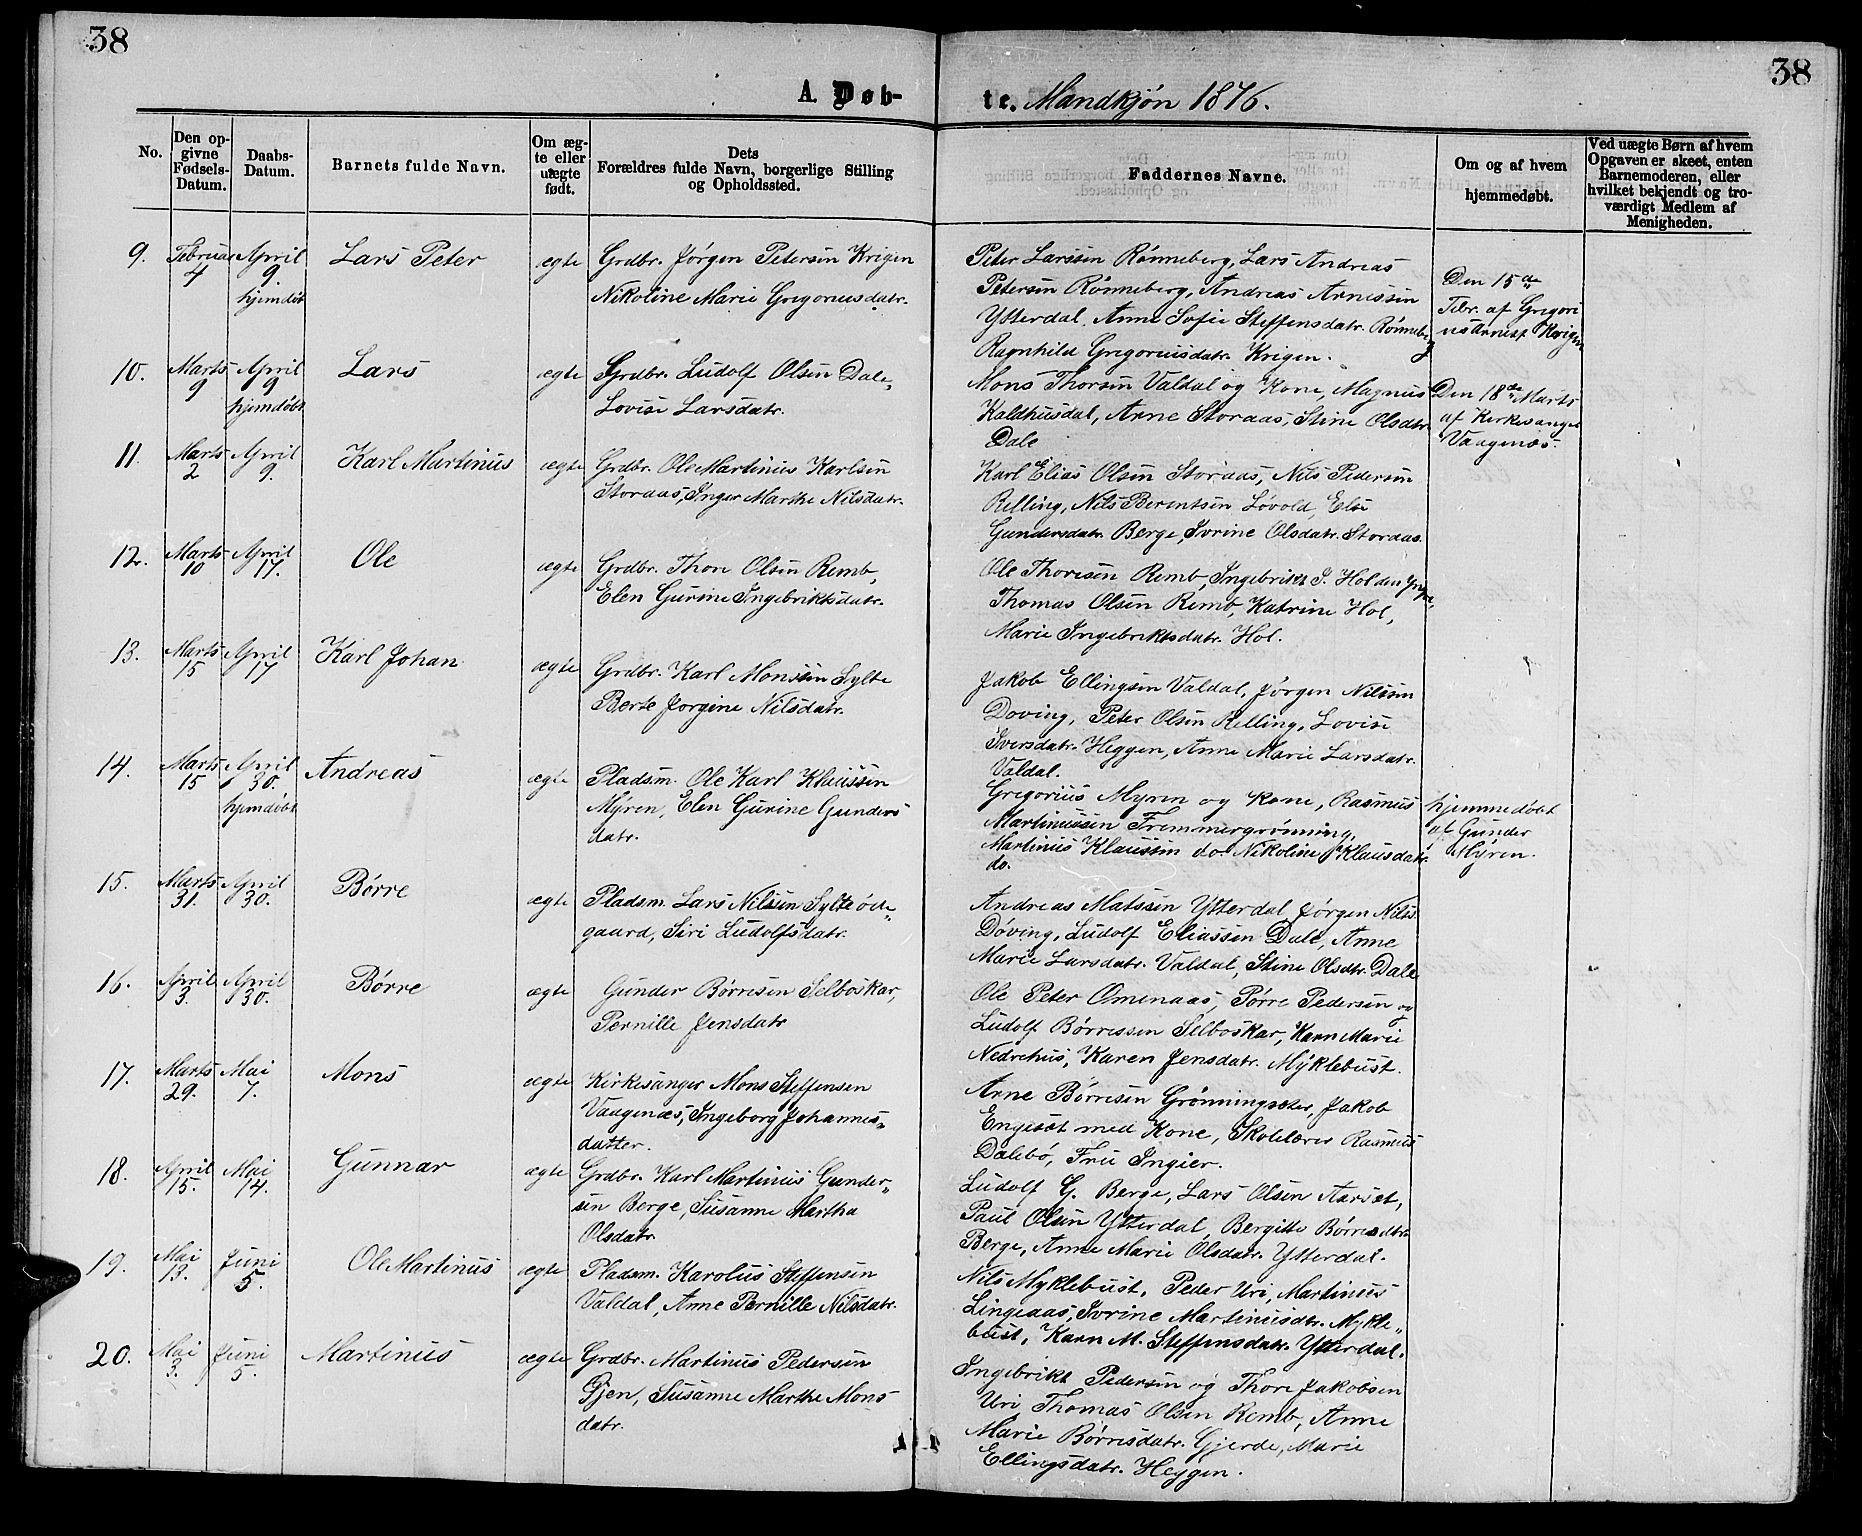 38
38
A. Døb-
te. Mandkjøn 1876.
No.
Den op-
givne
Fødsels-
Datum.
Daabs-
Datum.
Barnets fulde Navn.
Om æg-
te eller
uægte
født.
Dets
Forældres fulde Navn, borgerlige Stilling
og Opholdssted.
Faddernes Navne.
Om og af hvem
hjemmedøbt.
Ved uægte Børn af hvem
Opgaven er skeet, enten
Barnemoderen, eller
hvilket bekjendt og tro-
værdigt Medlem af
Menigheden.
9.
Februar
4
April
9
hjemdøbt
Lars Peter
ægte
Grdbr. Jørgen Petersen Krigen
Nikoline Marie Gregoriusdatr.
Peter Larssen Rønneberg, Lars Andreas
Petersen Rønneberg, Andreas Arnessen
Ytterdal, Anne Sofie Steffensdatr. Rønneberg
Ragnhild Gregoriusdatr. Krigen.
Den 15de
Febr. af Gregori
us Arnesf. Krigen
10.
Marts
9
April
9
hjemdøbt
Lars
ægte
Grdbr. Ludolf Olsen Dale,
Lovise Larsdatr.
Mons Thorsen Valdal og Kone, Magnus
Kaldhusdal, Arne Storaas, Stine Olsdtr.
Dale
Den 18de Marts
af Kirkesanger
Vaagenæs.
11.
Marts
2
April
9.
Karl Martinus
ægte
Grdbr. Ole Martinus Karlsen
Storaas, Inger Marthe Nilsdatr.
Karl Elias Olsen Storaas, Nils Pedersen
Relling, Nils Berentsen Løvold, Else
Gundersdatr. Berge, Ivrine Olsdatr. Storaas.
12.
Marts
10
April
17.
Ole
ægte
Grdbr. Thore Olsen Remb,
Elen Gurine Ingebriktsdatr.
Ole Thoresen Remb, Ingebrikt I. Hol den yngre,
Thomas Olsen Remb, Katrine Hol,
Marie Ingebriktsdatr. Hol.
13.
Marts
15
April
17
Karl Johan
ægte
Grdbr. Karl Monssen Sylte
Berte Jorgine Nilsdatr.
Jakob Ellingsen Valdal, Jørgen Nilssen
Døving, Peter Olsen Relling, Lovise
Iversdatr. Heggen, Anne Marie Larsdatr.
Valdal.
14.
Marts
15
April
30.
hjemdøbt
Andreas
ægte
Pladsm. Ole Karl Klaussen
Myren, Elen Gurine Gunders
datr.
Gregorius Myren og Kone, Rasmus
Martinussen Fremmergrønning,
Martinus Klaussen do. Nikoline Klausdatr.
do.
hjemmedøbt
af Gunder
Myren.
15.
Marts
31.
April
30.
Børre
ægte
Pladsm. Lars Nilssen Sylteøde-
gaard, Siri Ludolfsdatr.
Andreas Matssen Ytterdal, Jørgen Nilss.
Døving, Ludolf Eliassen Dale, Anne
Marie Larsdatr. Valdal, Stine Olsdtr. Dale
16.
April
3.
April
30.
Børre
ægte
Gunder Børresen Selboskar,
Pernille Jensdatr
Ole Peter Omenaas, Børre Pedersen og
Ludolf Børressen Selboskar, Karn Marie
Nedrehus, Karen Jensdatr. Myklebust.
17.
Marts
29.
Mai
7.
Mons
ægte
Kirkesanger Mons Steffensen
Vaagenæs, Ingeborg Johannes-
datter.
Arne Børresen Grønningsæter, Jakob
Engesæt med Kone, Skolelærer Rasmus
Dalebø, Fru Ingier.
18.
April
15.
Mai
14.
Gunnar
ægte
Grdbr. Karl Martinus Gunder-
sen Berge, Susanne Martha
Olsdatr.
Ludolf G. Berge, Lars Olsen Aarset,
Paul Olsen Ytterdal, Bergitte Børresdtr.
Berge, Anne Marie Olsdatr. Ytterdal.
19.
Mai
13.
Juni
5.
Ole Martinus
ægte
Pladsm. Karolus Steffensen
Valdal, Anne Pernille Nilsdatr.
Nils Myklebust, Peder Uri, Martinus
Lingeaas, Ivrine Martinusdtr. Mykle-
bust, Karn M. Steffensdatr. Ytterdal.
20.
Mai
3.
Juni
5.
Martinus
ægte
Grdbr. Martinus Pedersen
Øjen, Susanne Marthe Mons
datr.
Ingebrikt Pedersen og Thore Jakobsen
Uri, Thomas Olsen Remb, Anne
Marie Børresdatr. Gjerde, Marie
Ellingsdatr. Heggen.